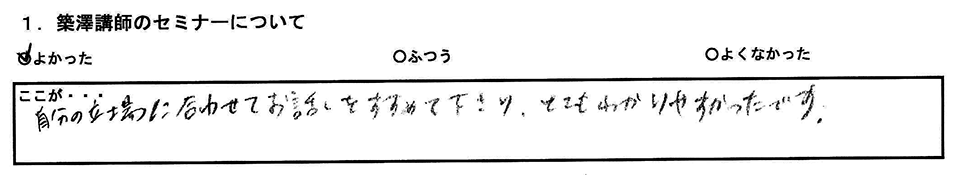 1．築澤講師のセミナーについて
よかった ○ふつう ○よくなかった
ここが・・・
自分の立場に合わせてお話しをすすめて下さり、とてもわかりやすかったです。